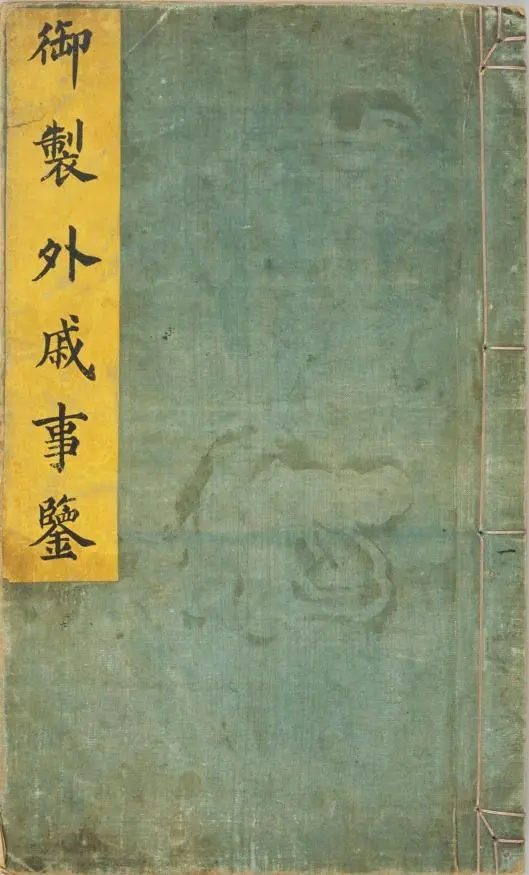 御製外戚事鑒
一